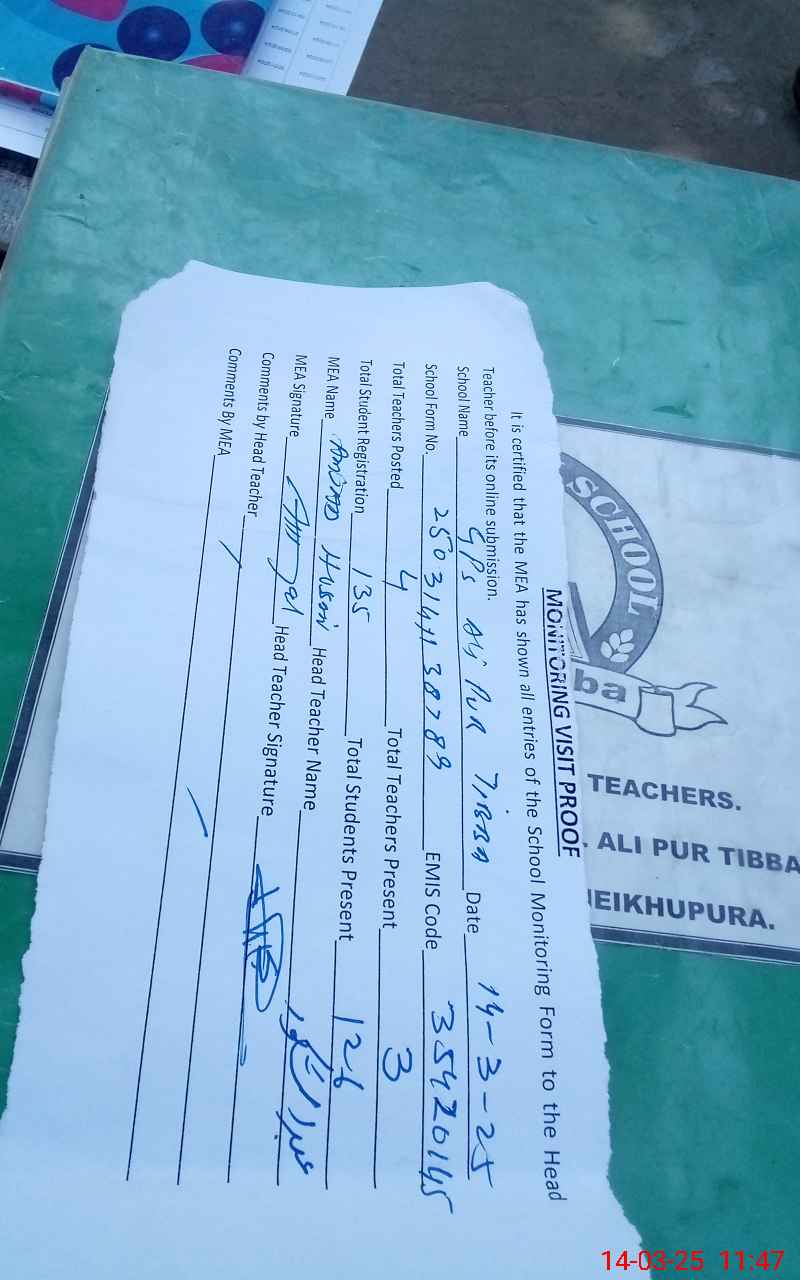 MONITORING VISIT PROOF
It is certified that the MEA has shown all entries of the School Monitoring Form to the Head
Teacher before its online submission.
School Name GPS Ali PUR TiBBA Date 14-3-25
School Form No. EMIS Code 35420145
Total Teachers Posted 4 Total Teachers Present 3
Total Student Registration 135 Total Students Present 126
MEA Name AMJAD Husain Head Teacher Name
MEA Signature Head Teacher Signature
Comments by Head Teacher
Comments By MEA
SCHOOL
ba
TEACHERS.
. ALI PUR TIBBA
HEIKHUPURA.
14-03-25 11:47